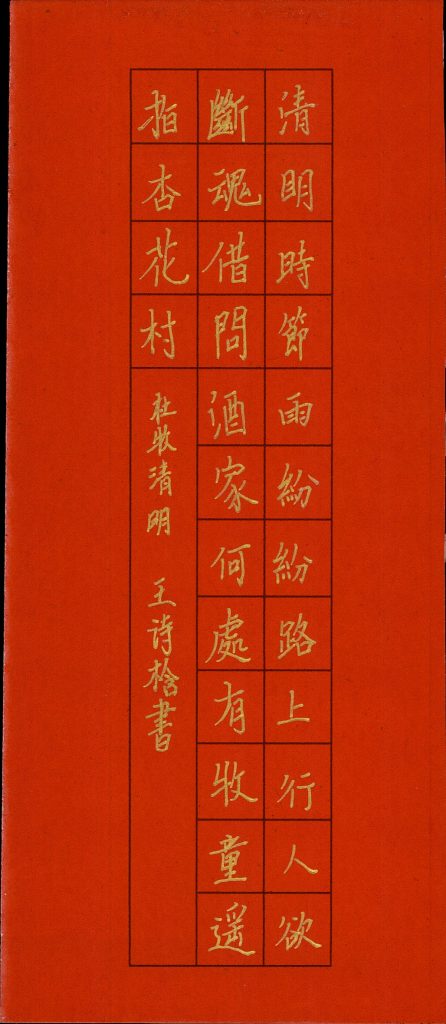 清明時節雨紛紛路上行人欲
斷魂借問酒家何處有牧童遥
指杏花村
杜牧清明 王诗書